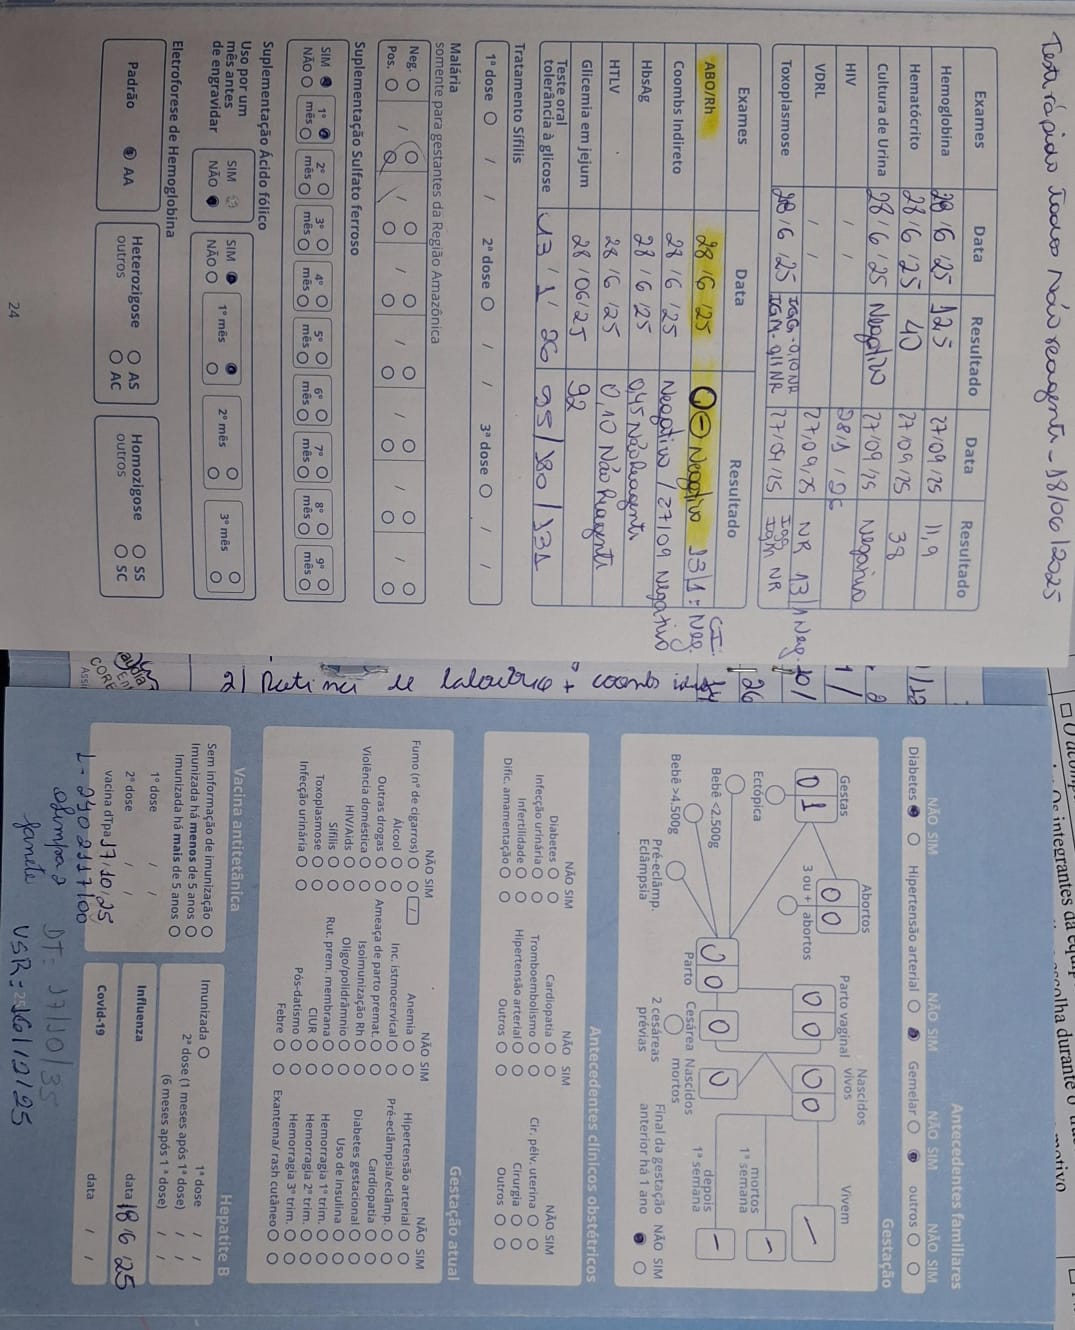 Teste rápido todos não reagente - 18/06/2025
Exames Data Resultado Data Resultado
Hemoglobina 28/6/25 125 27/09/25 11,9
Hematócrito 28/6/25 40 27/09/25 38
Cultura de Urina 28/6/25 Negativo 27/09/25 Negativo
HIV / / 28/1/26
VDRL / / 27/09/25 NR 13/1 Neg.
Toxoplasmose 28/6/25 IGG-0,10 NR 27/09/25 Igg
IGM-0,11 NR IgM NR
Exames Data Resultado
ABO/Rh 28/6/25 O(-) Negativo 13/1: Neg
CI:
Coombs Indireto 28/6/25 Negativo / 27/09 Negativo
HbsAg 28/6/25 0,45 Não Reagente
HTLV 28/6/25 0,10 Não Reagente
Glicemia em jejum 28/06/25 92
Teste oral
tolerância à glicose 13/1/26 95/180/131
Tratamento Sífilis
1ª dose / / 2ª dose / / 3ª dose / /
Malária
somente para gestantes da Região Amazônica
Neg. / / / / / / /
Pos.
Suplementação Sulfato ferroso
SIM 1º 2º 3º 4º 5º 6º 7º 8º 9º
NÃO mês mês mês mês mês mês mês mês mês
Suplementação Ácido fólico
Uso por um
mês antes
de engravidar
SIM
NÃO
SIM
NÃO
1º mês 2º mês 3º mês
Eletroforese de Hemoglobina
Padrão AA
Heterozigose AS
outros AC
Homozigose SS
outros SC
24
2) Rotina de laboratório + coombs
26
COREN
Antecedentes familiares
NÃO SIM NÃO SIM NÃO SIM NÃO SIM
Diabetes Hipertensão arterial Gemelar outros
Gestação
Gestas Abortos Parto vaginal Nascidos vivos Vivem
0 1 0 0 0 0 0 0 -
3 ou + abortos
Ectópica
mortos
1ª semana -
Bebê <2.500g
0 0 0 0
Parto Cesárea Nascidos mortos
depois
1ª semana -
Bebê >4.500g
Pré-eclâmp.
Eclâmpsia
2 cesáreas
prévias
Final da gestação
anterior há 1 ano
NÃO SIM
Antecedentes clínicos obstétricos
NÃO SIM NÃO SIM NÃO SIM
Diabetes Cardiopatia Cir. pélv. uterina
Infecção urinária Tromboembolismo Cirurgia
Infertilidade Hipertensão arterial Outros
Dific. amamentação Outros
Gestação atual
NÃO SIM NÃO SIM NÃO SIM
Fumo (nº de cigarros) Anemia Hipertensão arterial
Álcool Inc. istmocervical Pré-eclâmpsia/eclâmp.
Outras drogas Ameaça de parto premat. Cardiopatia
Violência doméstica Isoimunização Rh Diabetes gestacional
HIV/Aids Oligo/polidrâmnio Uso de insulina
Sífilis Rut. prem. membrana Hemorragia 1º trim.
Toxoplasmose CIUR Hemorragia 2º trim.
Infecção urinária Pós-datismo Hemorragia 3º trim.
Febre Exantema/ rash cutâneo
Vacina antitetânica
Sem informação de imunização
Imunizada há menos de 5 anos
Imunizada há mais de 5 anos
1º dose / /
2º dose / /
vacina dTpa 17/10/25
Hepatite B
Imunizada 1ª dose / /
2ª dose (1 meses após 1ª dose) / /
(6 meses após 1ª dose) / /
Influenza data 18/6/25
Covid-19 data / /
DT = 17/10/35
Janete VSR =
25